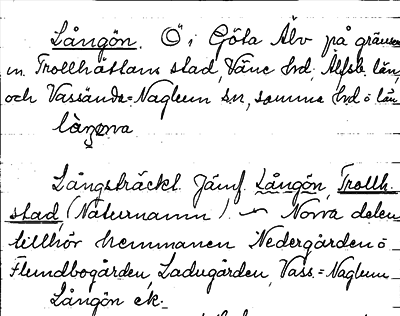 Långön. Ö i Göta Älv på gränsen
m. Trollhättans stad, Väne hd. Älfsb. län,
och Vassända-Naglum sn, samma hd o län
långǫna
Långsträckt. Jämf. Långön, Trollh.
stad, (Naturnamn). – Norra delen
tillhör hemmanen Nedergården o
Flundbogården, Ladugården, Vass.-Naglum
Långön ek.